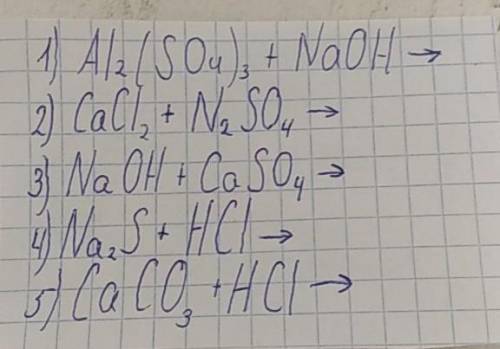 1) Al₂(SO₄)₃ + NaOH →
2) CaCl₂ + N₂SO₄ →
3) NaOH + CaSO₄ →
4) Na₂S + HCl →
5) CaCO₃ + HCl →